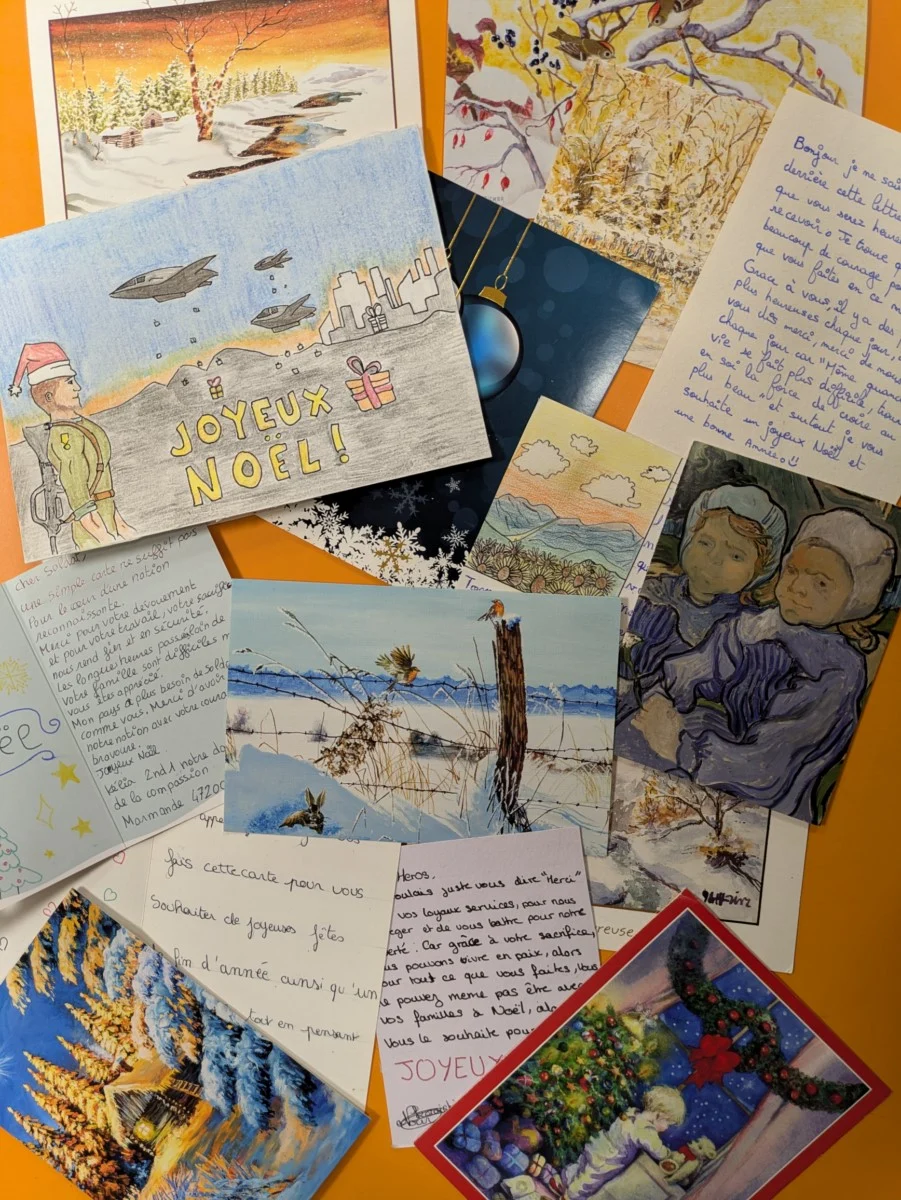 JOYEUX
NOËL !
Bonjour je ne
derrière cette lettre
que vous serez
recevoir. Je trouve
beaucoup de courage
que vous faites en ce
Grâce à vous, il y a des
plus heureuses chaque jour,
vous dis merci, merci de
chaque jour car "Même quand
vie se fait plus difficile,
en soi la force de croire au
plus beau" et surtout je vous
souhaite un joyeux Noël et
une bonne Année.
cher Soldat
une simple carte ne suffit pas
Pour le cœur d'une nation
reconnaissante.
Merci pour votre dévouement
et pour votre travail, votre sacrifice
nous rend fin et en sécurité.
Les longues heures passé loin de
votre famille sont difficiles
vous êtes apprécié.
Mon pays a plus besoin de Soldat
comme vous, Merci d'avoir
notre nation avec votre
bravoure.
Joyeux Noël
Kélia 2nd1 notre
de la compassion
Marmande 47200
fais cette carte pour vous
Souhaiter de joyeuses fêtes
fin d'année ainsi qu'un
tout en pensant
Heros,
juste vous dire "Merci"
vos loyaux services, pour nous
et de vous battre pour notre
Car grâce à votre sacrifice,
pouvons vivre en paix, alors
tout ce que vous faites, Vous
pouvez meme pas être
vos familles à Noël,
Vous le souhaite
JOYEUX